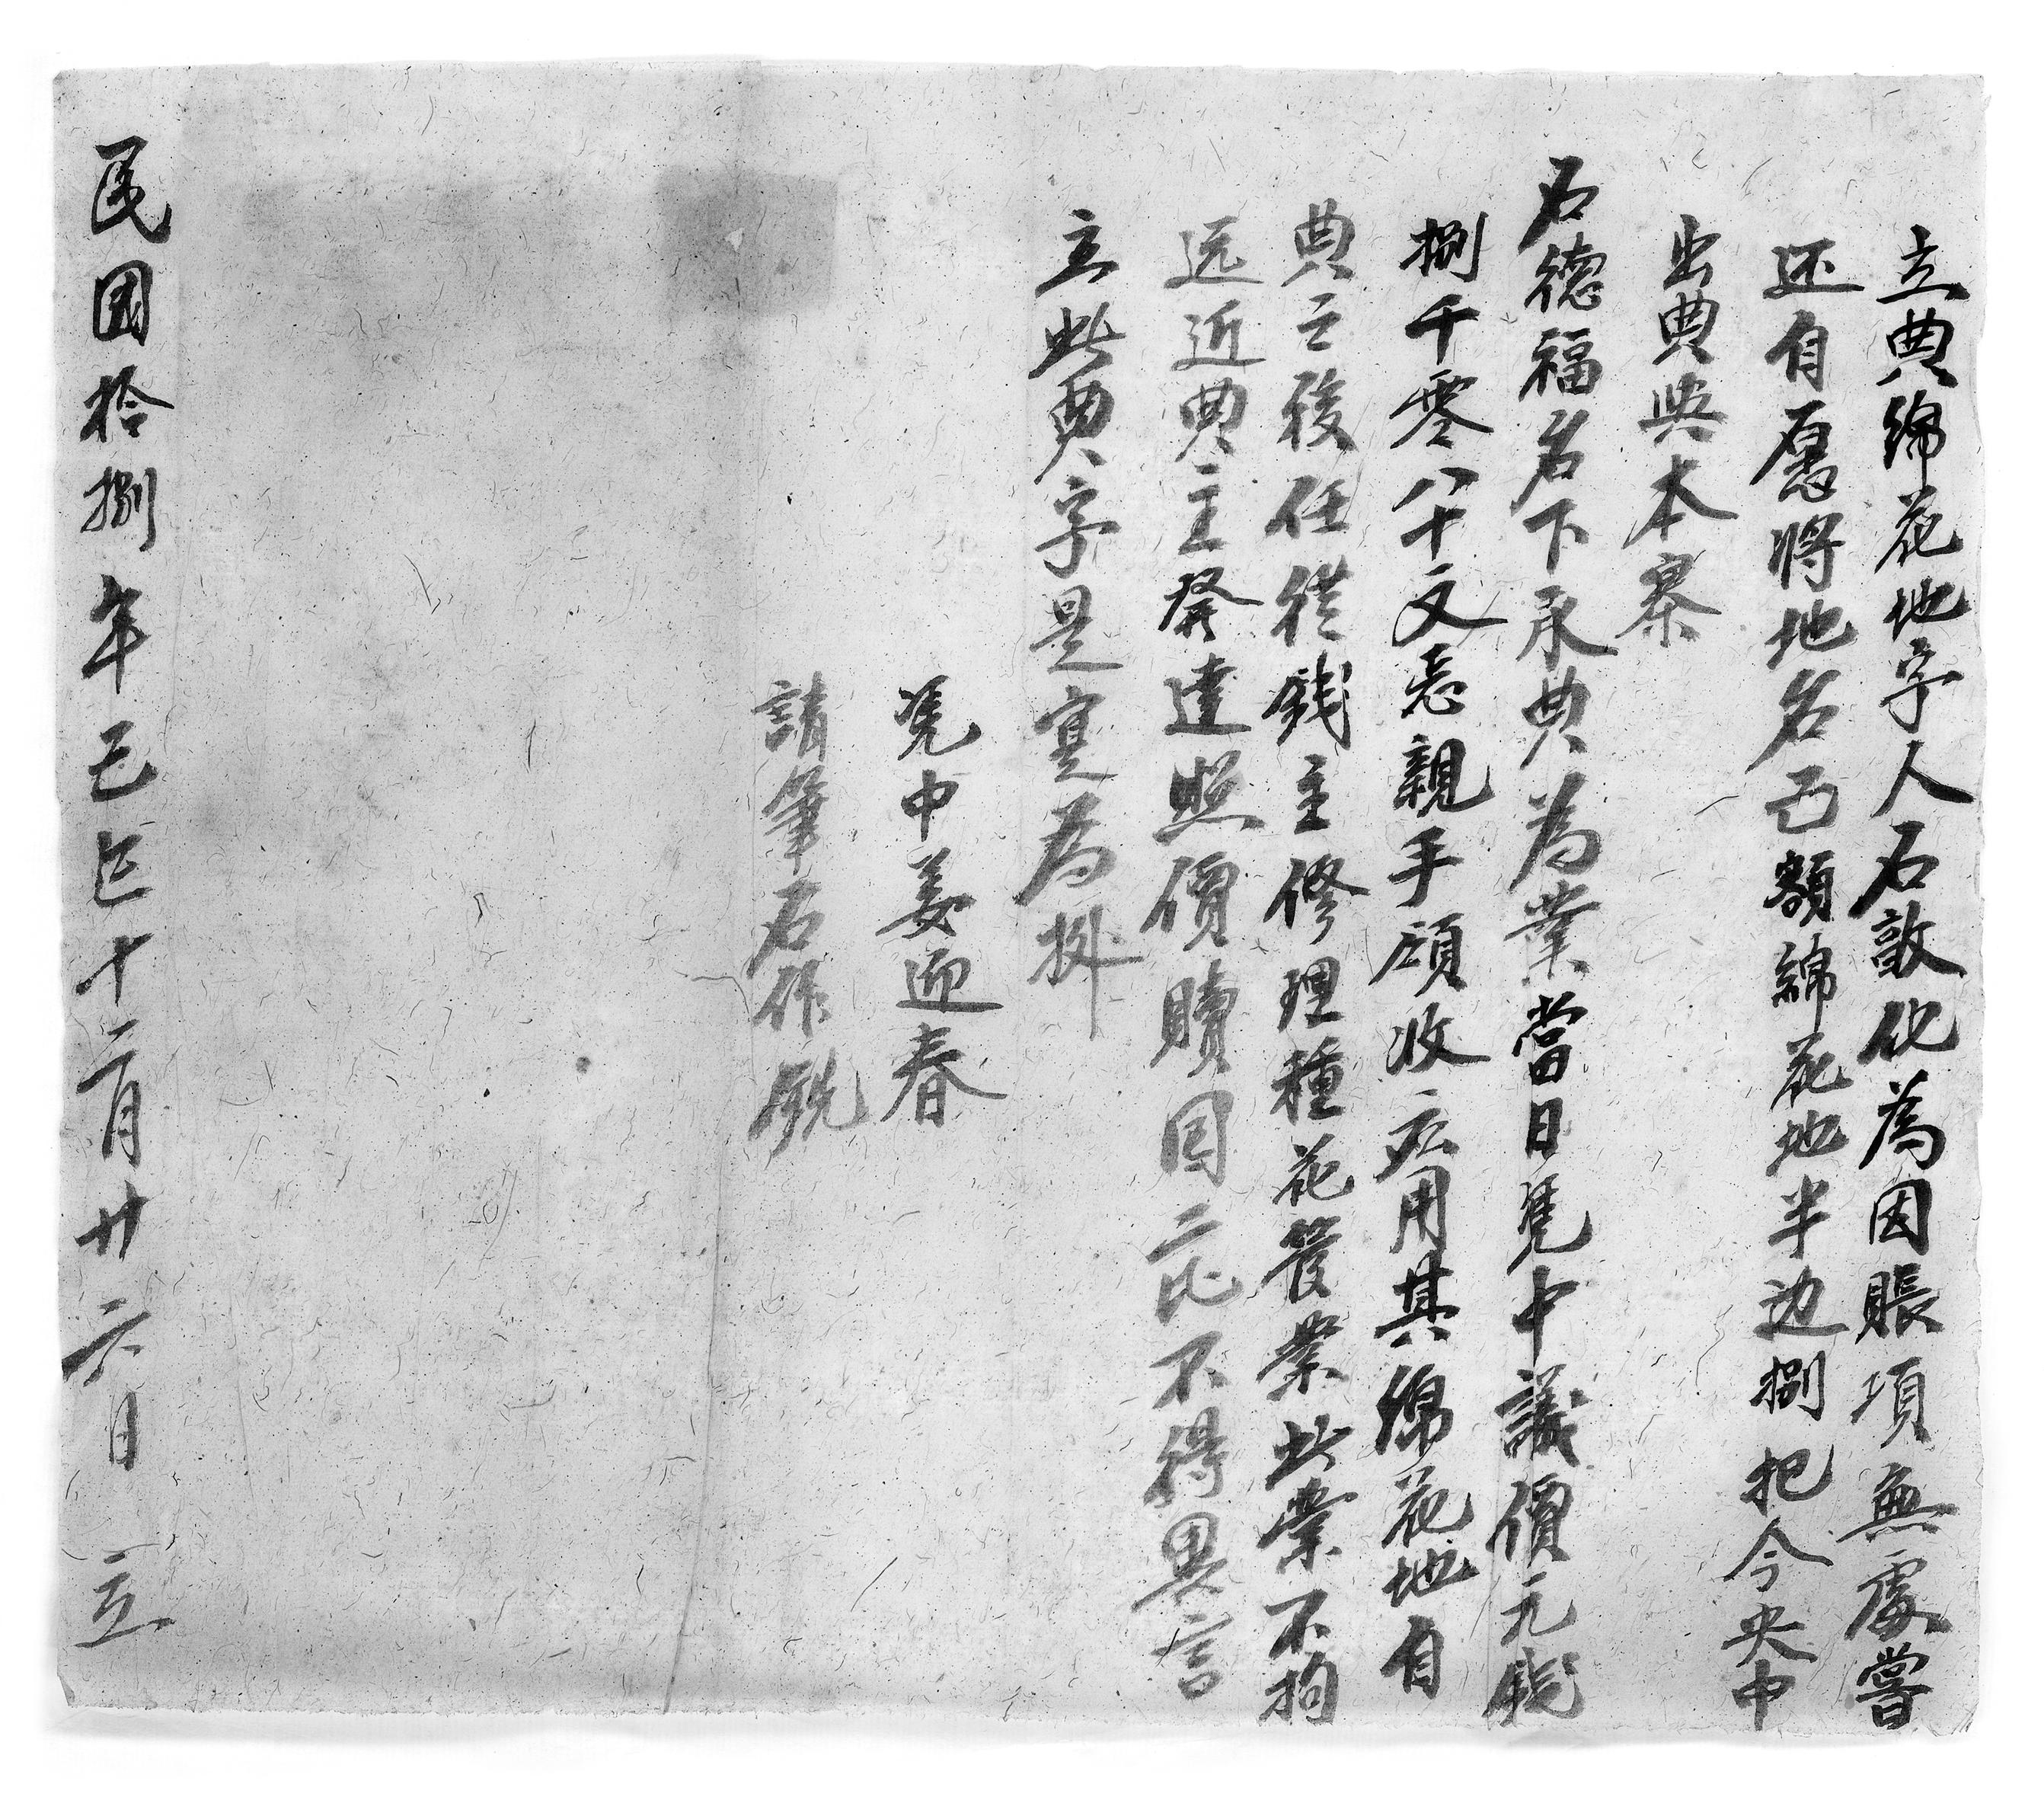 立典綿花地字人石敦化為因賬項無處嘗
还自愿將地名己額綿花地半边捌把今央中
出典與本寨
石德福名下承典為業當日凭中議價元錢
捌千零八十文悉親手領收应用其綿花地自
典之後任從錢主修理種花管業此業不拘
远近典主發達照價贖囬二比不得異言
立此典字是寔為拠
凭中姜迎春
請筆石作
民國拾捌年己巳十二月廿六日 立